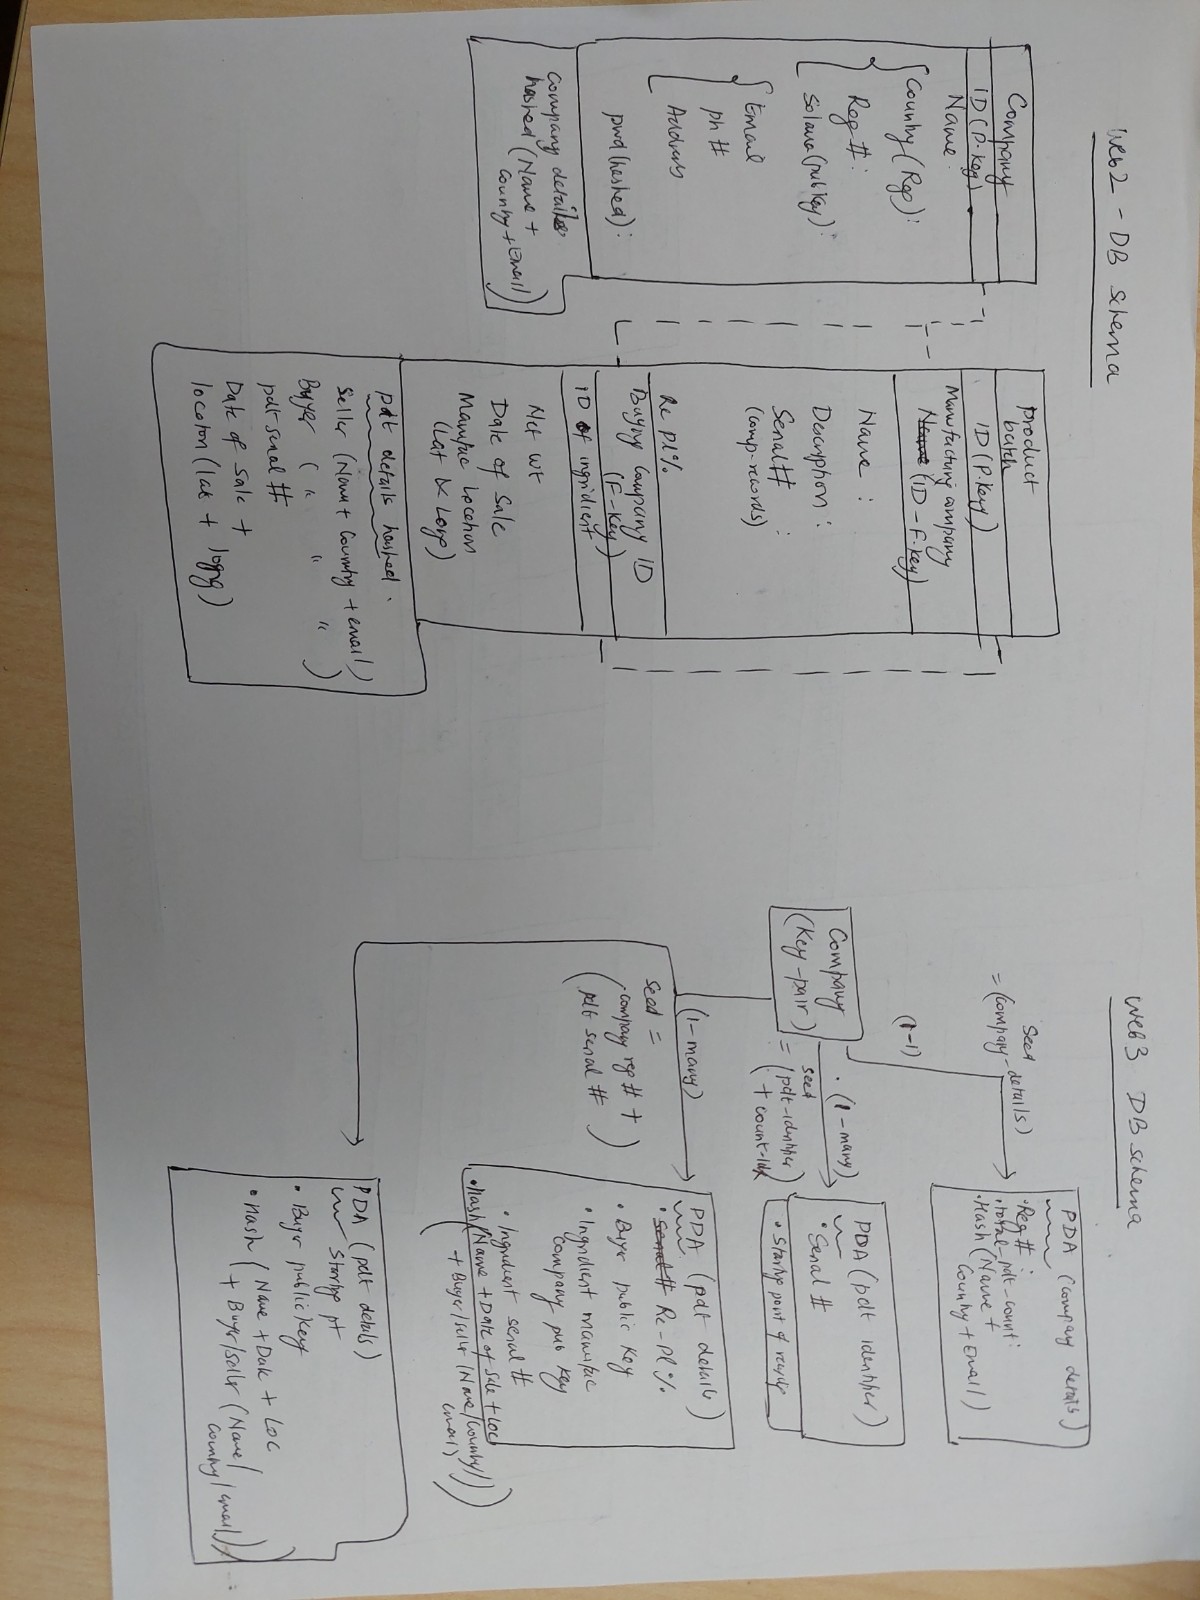 Web2 - DB Schema
Company
ID (P. Key)
Name :
Country (Reg) :
Reg # :
Solana (pubkey) :
Email
ph #
Address
pwd (hashed) :
Company details
hashed (Name +
Country + Email)
product
batch
ID (P. Key)
Manufacturing company
Name (ID - F. Key)
Name :
Description :
Serial # :
(comp. records)
Re Pl %
Buying Company ID
(F - Key)
ID of ingridient
Net wt
Date of Sale
Manufac Location
(Lat & Long)
pdt details hashed .
Seller (Name + Country + email)
Buyer ( " " " )
pdt serial #
Date of Sale +
location (lat + long)
Web3 DB schema
Seed
= (company-details)
(1-1)
PDA (company details)
• Reg # :
• total_pdt_count :
• Hash (Name +
Country + Email)
Company
(Key-pair)
. (1 - many)
seed
= (pdt-identifier
+ count-idx)
PDA (pdt identifier)
• Serial #
• Starting point of recycling
(1-many)
Seed =
(company reg # +
pdt serial #)
PDA (pdt details)
• Serial # Re-Pl %
• Buyer public Key
• Ingridient manufac
company pub key
• Ingridient serial #
• Hash (Name + Date of Sale + Loc
+ Buyer/Seller (Name/Country/
email))
PDA (pdt details)
Starting pt
• Buyer public Key
• Hash (Name + Date + Loc
+ Buyer/Seller (Name/
Country/email))